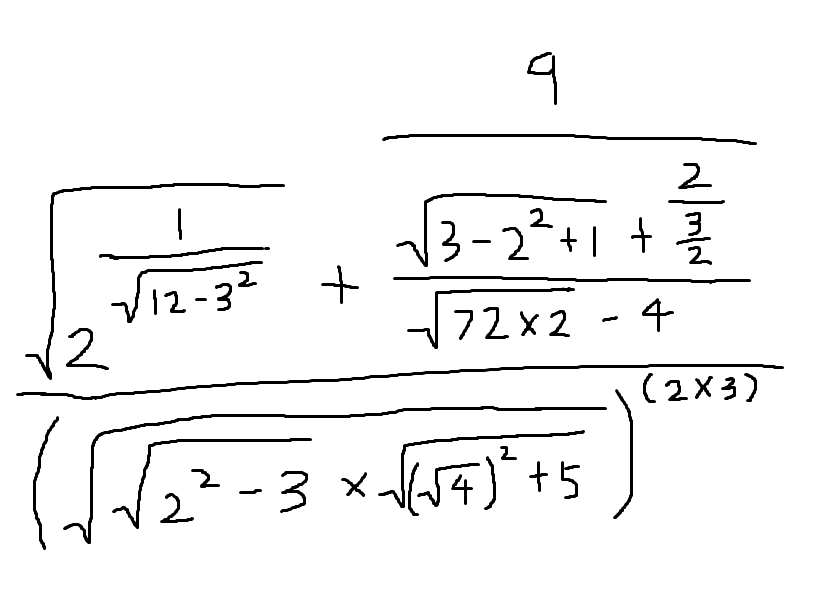 \frac{\sqrt{2^{\frac{1}{\sqrt{12-3^2}}}} + \frac{9}{\frac{\sqrt{3-2^2+1} + \frac{2}{\frac{3}{2}}}{\sqrt{72 \times 2} - 4}}}{\left(\sqrt{\sqrt{2^2-3} \times \sqrt{(\sqrt{4})^2+5}}\right)^{(2 \times 3)}}